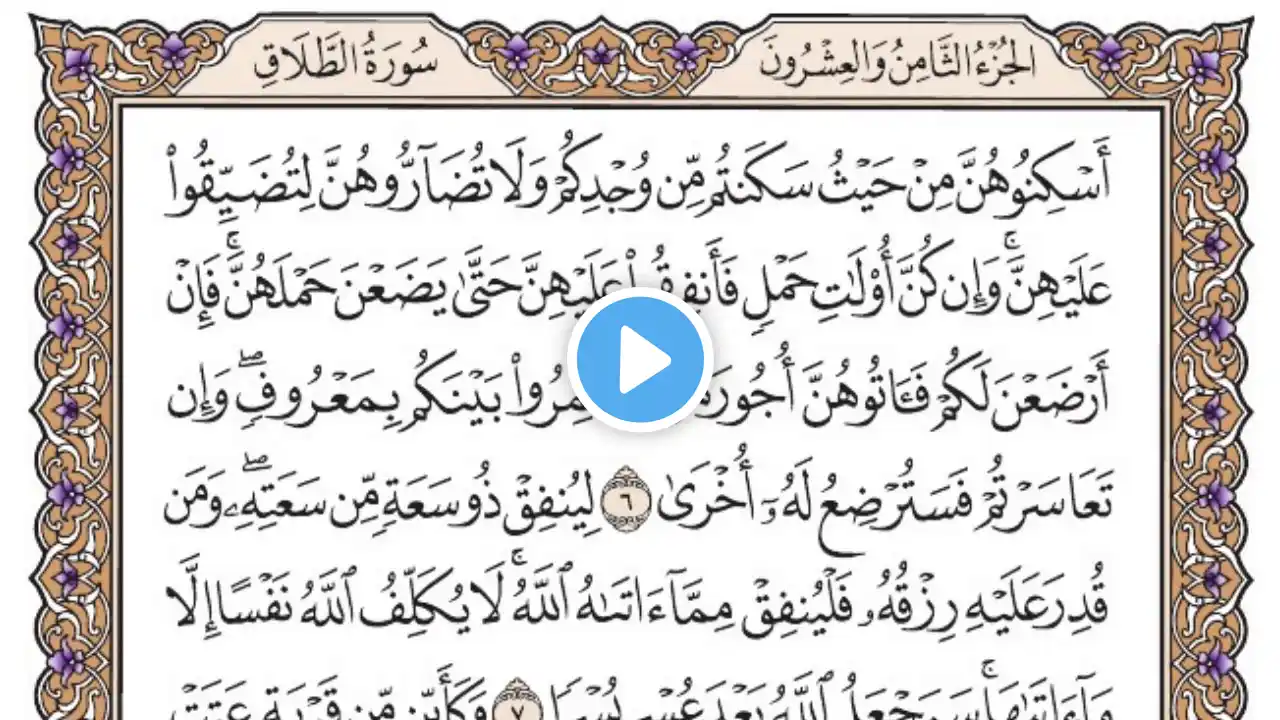 الجُزْءُ الثَّامِنُ وَالعِشْرُونَ
سُورَةُ الطَّلَاقِ
أَسْكِنُوهُنَّ مِنْ حَيْثُ سَكَنتُم مِّن وُجْدِكُمْ وَلَا تُضَآرُّوهُنَّ لِتُضَيِّقُوا۟
عَلَيْهِنَّ ۚ وَإِن كُنَّ أُو۟لَٰتِ حَمْلٍ فَأَنفِقُوا۟ عَلَيْهِنَّ حَتَّىٰ يَضَعْنَ حَمْلَهُنَّ ۚ فَإِنْ
أَرْضَعْنَ لَكُمْ فَـَٔاتُوهُنَّ بَيْنَكُم بِمَعْرُوفٍ ۖ وَإِن
تَعَاسَرْتُمْ فَسَتُرْضِعُ لَهُۥٓ أُخْرَىٰ ٦ لِيُنفِقْ ذُو سَعَةٍ مِّن سَعَتِهِۦ ۖ وَمَن
قُدِرَ عَلَيْهِ رِزْقُهُۥ فَلْيُنفِقْ مِمَّآ ءَاتَىٰهُ ٱللَّهُ ۚ لَا يُكَلِّفُ ٱللَّهُ نَفْسًا إِلَّا
مَآ ءَاتَىٰهَا ۚ سَيَجْعَلُ ٱللَّهُ بَعْدَ عُسْرٍ يُسْرًا ٧ وَكَأَيِّن مِّن قَرْيَةٍ عَتَتْ